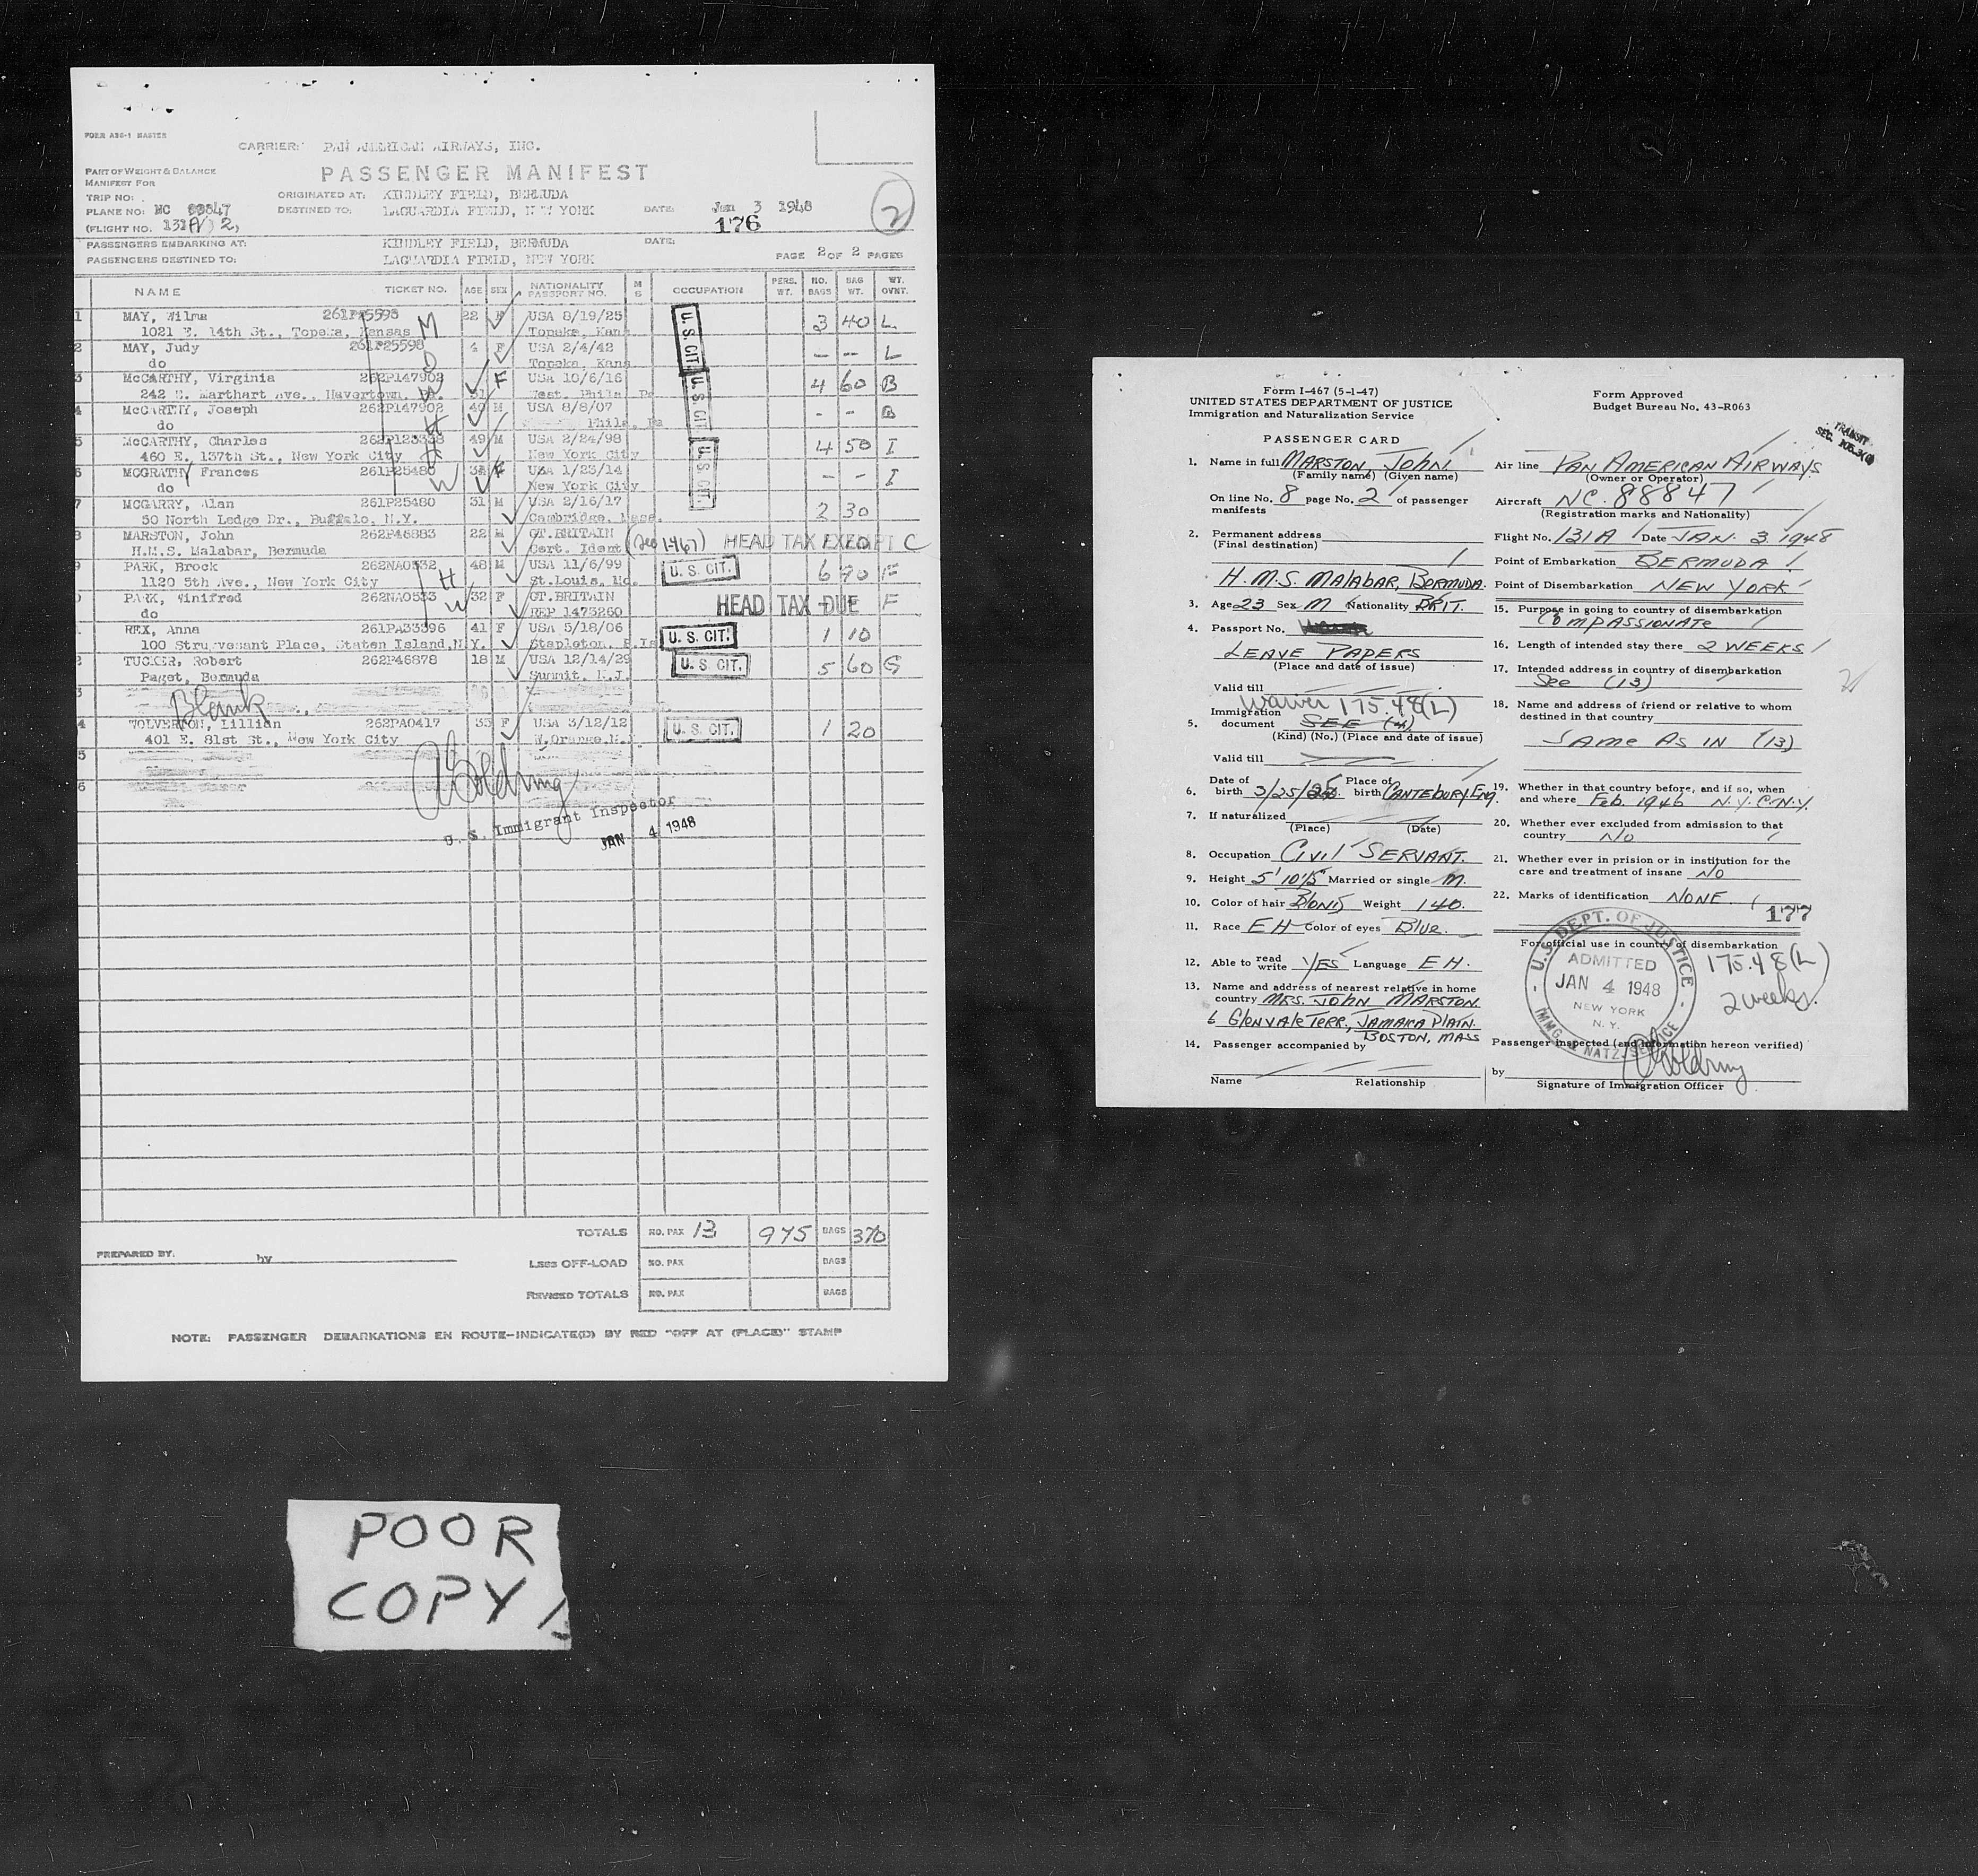 FORM ASC-1 MASTER
CARRIER: PAN AMERICAN AIRWAYS, INC.
PASSENGER MANIFEST
PART OF WEIGHT & BALANCE
MANIFEST FOR
TRIP NO:
ORIGINATED AT: KINDLEY FIELD, BERMUDA
PLANE NO: NC 88847
DESTINED TO: LAGUARDIA FIELD, NEW YORK
DATE: Jan 3 1948
2
(FLIGHT NO. 131A) 2)
176
PASSENGERS EMBARKING AT: KINDLEY FIELD, BERMUDA DATE:
PASSENGERS DESTINED TO: LAGUARDIA FIELD, NEW YORK PAGE 2 OF 2 PAGES
NAME TICKET NO. AGE SEX NATIONALITY PASSPORT NO. M S OCCUPATION PERS. WT. NO. BAGS BAG WT. WT. OVNT.
1 MAY, Wilma 261P25598 M 22 F USA 8/19/25 U. S. CIT. 3 40 L
1021 E. 14th St., Topeka, Kansas Topeka, Kan.
2 MAY, Judy 261P25598 D 4 F USA 2/4/42 -- -- L
do Topeka, Kans
3 McCARTHY, Virginia 262P147902 W 31 F USA 10/6/16 U. S. CIT 4 60 B
242 E. Marthart Ave., Havertown, Pa. West. Phila. Pa
4 McCARTHY, Joseph 262P147902 H 40 M USA 8/8/07 - - B
do Phila. Pa
5 McCARTHY, Charles 262P123338 H 49 M USA 2/24/98 U. S. CIT. 4 50 I
460 E. 137th St., New York City New York City
6 MCGRATH, Frances 261P25480 W F USA 1/23/14 - - I
do New York City
7 MCGARRY, Alan 261P25480 31 M USA 2/16/17 2 30
50 North Ledge Dr., Buffalo, N.Y. Cambridge, Mass.
8 MARSTON, John 262P46883 22 M GT.BRITAIN (See I-467) HEAD TAX EXEMPT C
H.M.S. Malabar, Bermuda Cert. Ident
9 PARK, Brock 262NA0532 H 48 M USA 11/6/99 U. S. CIT. 6 90 F
1120 5th Ave., New York City St.Louis, Mo.
PARK, Winifred 262NA0533 W 32 F GT.BRITAIN HEAD TAX DUE F
do REP 1473260
REX, Anna 261PA33396 41 F USA 5/18/06 U. S. CIT. 1 10
100 Struyvesant Place, Staten Island,N.Y. Stapleton, S.Is
2 TUCKER, Robert 262P46878 18 M USA 12/14/29 U. S. CIT. 5 60 G
Paget, Bermuda Summit, N.J.
3
Blank
4 WOLVERTON, Lillian 262PA0417 35 F USA 3/12/12 U. S. CIT. 1 20
401 E. 81st St., New York City W.Orange,N.J.
5
6
A Goldring
U. S. Immigrant Inspector
JAN 4 1948
TOTALS NO. PAX 13 975 BAGS 370
PREPARED BY. by
LESS OFF-LOAD NO. PAX BAGS
REVISED TOTALS NO. PAX BAGS
NOTE: PASSENGER DEBARKATIONS EN ROUTE-INDICATE(D) BY RED "OFF AT (PLACE)" STAMP
POOR
COPY
Form I-467 (5-1-47)
UNITED STATES DEPARTMENT OF JUSTICE
Immigration and Naturalization Service
Form Approved
Budget Bureau No. 43-R063
PASSENGER CARD
TRANSIT
1. Name in full MARSTON, JOHN
(Family name) (Given name)
On line No. 8 page No. 2 of passenger
manifests
2. Permanent address
(Final destination)
H.M.S. MALABAR, BERMUDA.
3. Age 23 Sex M Nationality BRIT.
4. Passport No.
LEAVE PAPERS
(Place and date of issue)
Valid till
Waiver 175.48(L)
5. Immigration
document SEE (4)
(Kind) (No.) (Place and date of issue)
Valid till
6. Date of birth 3/25/25 Place of birth CANTEBURY, ENG.
7. If naturalized
(Place) (Date)
8. Occupation CIVIL SERVANT.
9. Height 5' 10 1/5" Married or single M.
10. Color of hair BLOND Weight 140.
11. Race EH Color of eyes BLUE.
12. Able to read write YES Language EH.
13. Name and address of nearest relative in home
country MRS. JOHN MARSTON
6 GLENVALE TERR., JAMAKA PLAIN.
BOSTON, MASS
14. Passenger accompanied by
Name Relationship
Air line PAN AMERICAN AIRWAYS.
(Owner or Operator)
Aircraft NC. 88847
(Registration marks and Nationality)
Flight No. 131A Date JAN. 3 1948
Point of Embarkation BERMUDA
Point of Disembarkation NEW YORK
15. Purpose in going to country of disembarkation
COMPASSIONATE
16. Length of intended stay there 2 WEEKS
17. Intended address in country of disembarkation
See (13)
18. Name and address of friend or relative to whom
destined in that country
SAME AS IN (13)
19. Whether in that country before, and if so, when
and where Feb. 1946 N.Y.C. N.Y.
20. Whether ever excluded from admission to that
country NO
21. Whether ever in prision or in institution for the
care and treatment of insane NO
22. Marks of identification NONE.
177
For official use in country of disembarkation
U.S. DEPT. OF JUSTICE
ADMITTED
JAN 4 1948
NEW YORK
N. Y.
IMMG. & NATZ. SERVICE
175.48(L)
2 weeks.
Passenger inspected (and information hereon verified)
by A Goldring
Signature of Immigration Officer